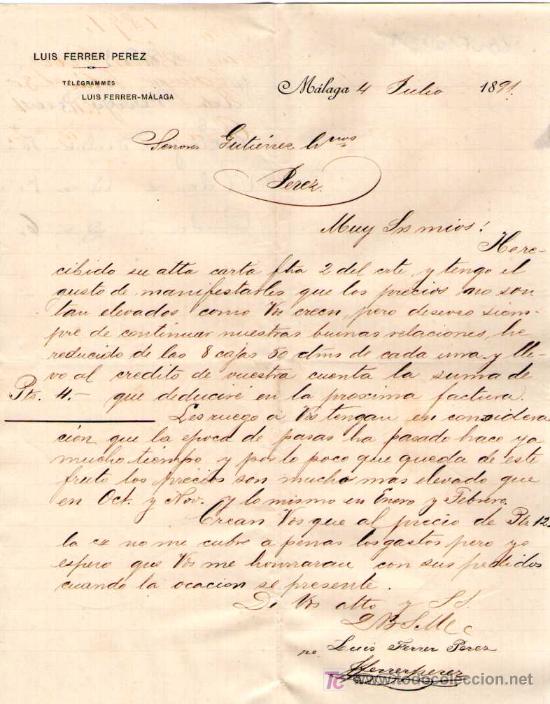 LUIS FERRER PEREZ
TÉLÉGRAMMES
LUIS FERRER-MÁLAGA
Málaga 4 Julio 1891.
Señores Gutiérrez Hnos
Jerez
Muy Srs mios!
He re-
cibido su atta carta fha 2 del cte, y tengo el
gusto de manifestarles que los precios no son
tan elevados como Vs creen, pero deseoso siem-
pre de continuar nuestras buenas relaciones, he
reducido de las 8 cajas 50 ctms de cada una y lle-
vo al credito de vuestra cuenta la suma de
Pts. 4.- que deduciré en la proxima factura.
Les ruego a Vs tengan en considera
ción, que la epoca de pasas ha pasado hace ya
mucho tiempo y por lo poco que queda de este
fruto los precios son mucho mas elevado que
en Oct. y Nov. y lo mismo en Enero y Febrero.
Crean Vos que al precio de Pts 12
la no me cubre a penas los gastos pero yo
espero que Vs me honraran con sus pedidos
cuando la ocacion se presente.
De Vs atto y S.S.
Q B S M
po Luis Ferrer Perez
tc todocoleccion.net